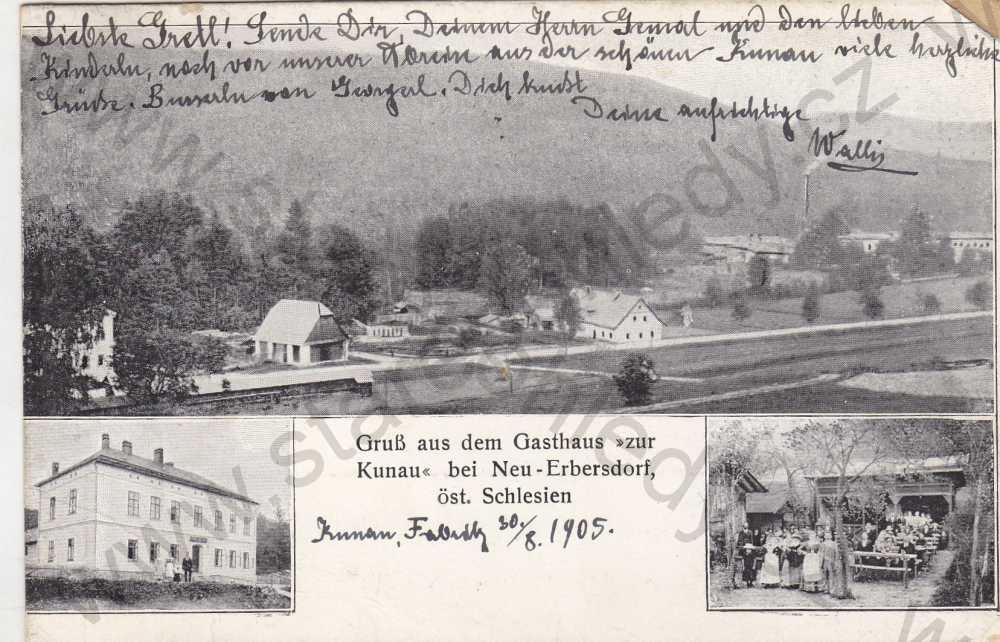 Liebste Gretl! Sende Dir, Deinem Herrn Gemal und den lieben
Kinderln, noch vor unserer Abreise aus der schönen Kunau viele herzliche
Grüße. Busserln von Georgerl. Dich küsst
Deine aufrichtige
Wally
Gruß aus dem Gasthaus »zur
Kunau« bei Neu-Erbersdorf,
öst. Schlesien
Kunau, 30./8. 1905.